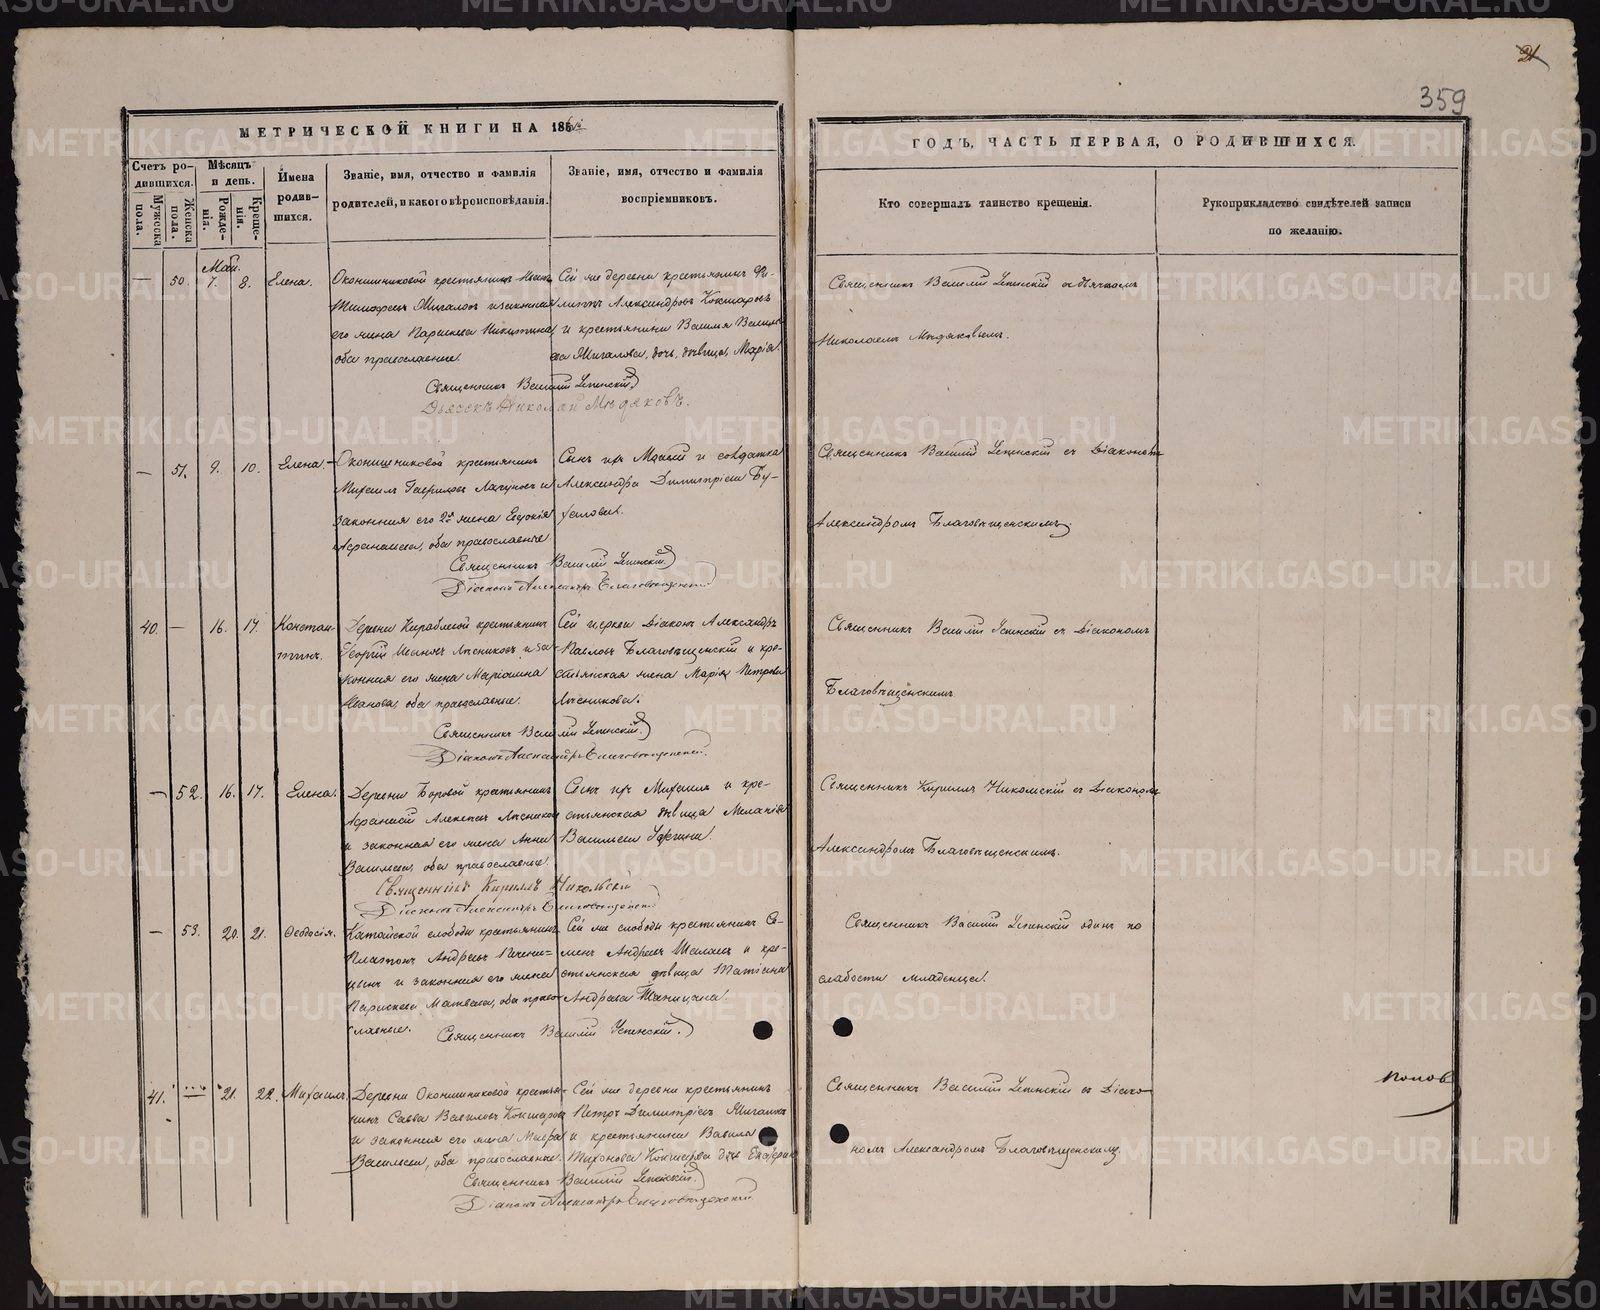 21
359
МЕТРИЧЕСКОЙ КНИГИ НА 186
ГОДЪ, ЧАСТЬ ПЕРВАЯ, О РОДИВШИХСЯ.
Счетъ ро-
дившихся.
Мужеска
пола.
Женска
пола.
Мѣсяцъ
и день.
Рожде-
нія.
Креще-
нія.
Имена
родив-
шихся.
Званіе, имя, отчество и фамилія
родителей, и какого вѣроисповѣданія.
Званіе, имя, отчество и фамилія
воспріемниковъ.
Кто совершалъ таинство крещенія.
Рукоприкладство свидѣтелей записи
по желанію.
Май.
— 50. 7. 8. Елена.
Оконишниковой крестьянинъ
Тимофеевъ Жигаловъ и законная
его жена Параскева Никитина
оба православные.
Сей же деревни крестьянинъ Фи-
липпъ Александровъ Кокшаровъ
и крестьянина Василья Василь-
ева Жигалова, дочь, дѣвица, Марія.
Священникъ Василій Успенскій
Дьячекъ Николай Мѣдяковъ.
Священникъ Василій Успенскій съ дьячкомъ
Николаемъ Мѣдяковымъ.
— 51. 9. 10. Елена.
Оконишниковой крестьянинъ
Михаилъ Гавриловъ и
законная его 2я жена Евдокія
оба православные.
Сынъ ихъ и солдатка
Александра Димитріева Бу-
Священникъ Василій Успенскій
Діаконъ Александръ Благовѣщенскій
Священникъ Василій Успенскій съ Діакономъ
Александромъ Благовѣщенскимъ.
40. — 16. 17. Констан-
тинъ.
Деревни крестьянинъ
Георгій Ивановъ Лѣсниковъ и за-
конная его жена Маріамна
Иванова, оба православные.
Сей церкви Діаконъ Александръ
Павловъ Благовѣщенскій и кре-
стьянская жена Марія Петрова
Лѣсникова.
Священникъ Василій Успенскій
Діаконъ Александръ Благовѣщенскій.
Священникъ Василій Успенскій съ Діакономъ
Благовѣщенскимъ
— 52. 16. 17. Елена.
Деревни Боровой крестьянинъ
Афанасій Алексѣевъ Лѣсниковъ
и законная его жена Анна
Васильева, оба православные.
Сынъ ихъ Михаилъ и кре-
стьянская дѣвица Меланія
Васильева
Священникъ Кириллъ Никольскій
Діаконъ Александръ Благовѣщенскій
Священникъ Кириллъ Никольскій съ Діакономъ
Александромъ Благовѣщенскимъ.
— 53. 20. 21. Ѳеодосія.
Катайской слободы крестьянинъ
Платонъ Андреевъ Печени-
цынъ и законная его жена
Параскева Матвеева, оба право-
славные.
Сей же слободы крестьянинъ Се-
менъ Андреевъ и кре-
стьянская дѣвица Татіана
Андреева
Священникъ Василій Успенскій.
Священникъ Василій Успенскій одинъ по
слабости младенца.
41. 21. 22. Михаилъ.
Деревни Оконишниковой крестья-
нинъ Савва Вавиловъ Кокшаровъ
и законная его жена Мавра
Васильева, оба православные.
Сей же деревни крестьянинъ
Петръ Димитріевъ Жигаловъ
и крестьянина Вавила
Тихонова Кокшарова дочь
Священникъ Василій Успенскій
Діаконъ Александръ Благовѣщенскій
Священникъ Василій Успенскій съ Діако-
номъ Александромъ Благовѣщенскимъ
Попов
METRIKI.GASO-URAL.RU